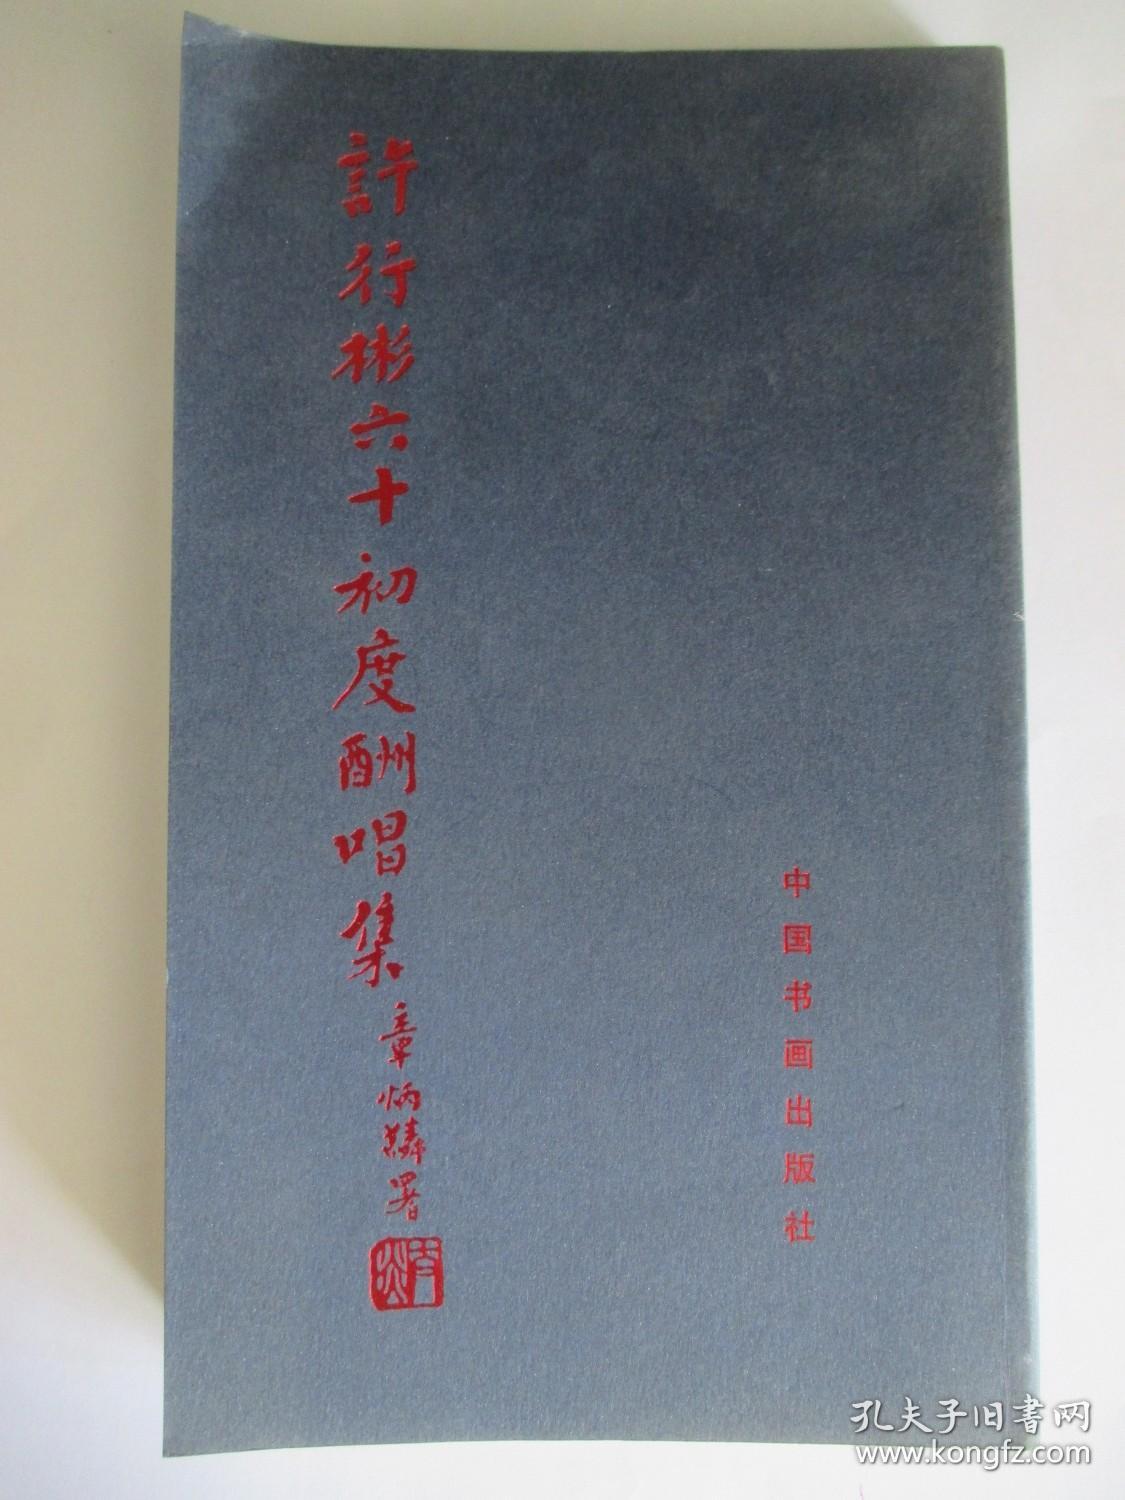 許行彬六十初度酬唱集
章炳麟署
中国书画出版社
孔夫子旧書网
www.kongfz.com